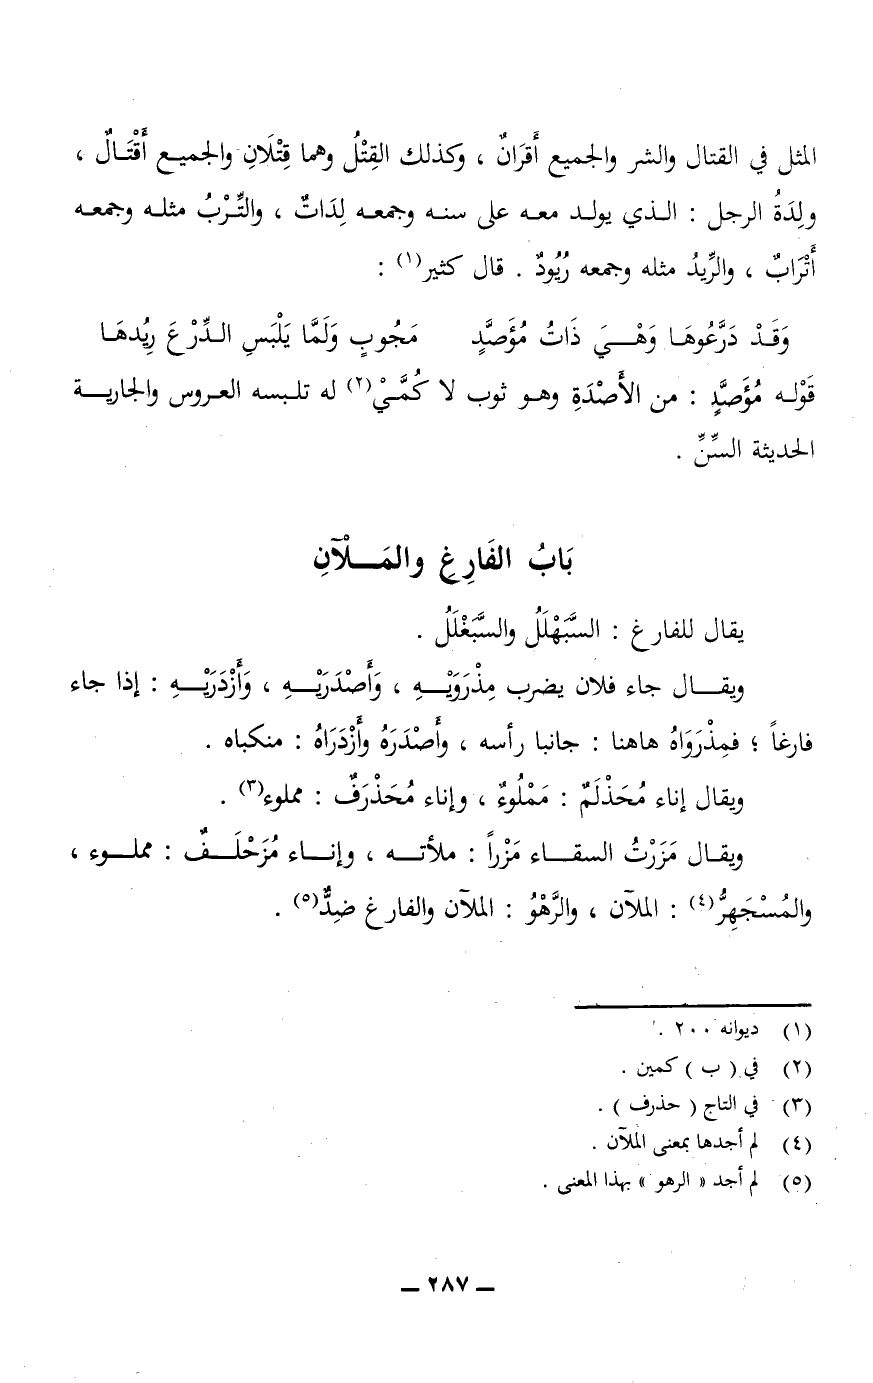 المثل في القتال والشر والجميع أَقرَانٌ ، وكذلك القِتْلُ وهما قِتْلَانِ والجميع أَقْتَالٌ ،
ولِدَةُ الرجل : الذي يولد معه على سنه وجمعه لِدَاتٌ ، والتِّرْبُ مثله وجمعه
أَتْرَابٌ ، والرِّيدُ مثله وجمعه رُيُودٌ . قال كثير(١) :
وَقَدْ دَرَّعُوهَا وَهْيَ ذَاتُ مُؤَصَّدٍ مَجُوبٍ وَلَمَّا يَلْبَسِ الدِّرْعَ رِيُدهَا
قَوْله مُؤَصَّدٍ : من الأَصْدَةِ وهو ثوب لا كُمَّيْ(٢) له تلبسه العروس والجارية
الحديثة السِّنِّ .
بَابُ الفَارِغِ والمَلْآنِ
يقال للفارغ : السَّبَهْلَلُ والسَّبَغْلَلُ .
ويقال جاء فلان يضرب مِذْرَوَيْهِ ، وَأَصْدَرَيْهِ ، وَأَزْدَرَيْهِ : إذا جاء
فارغاً ؛ فمِذْرَوَاهُ هاهنا : جانبا رأسه ، وأَصْدَرَهُ وأَزْدَرَاهُ : منكباه .
ويقال إناء مُحَذْلَمٌ : مَمْلُوءٌ ، وإناء مُحَذْرَفٌ : مملوء(٣) .
ويقال مَزَرْتُ السقاء مَزْراً : ملأته ، وإناء مُزَحْلَفٌ : مملوء ،
والمُسْجَهِرُّ(٤) : الملآن ، والرَّهْوُ : الملآن والفارغ ضِدٌّ(٥) .
(١) ديوانه ٢٠٠ .
(٢) في ( ب ) كمين .
(٣) في التاج ( حذرف ) .
(٤) لم أجدها بمعنى الملآن .
(٥) لم أجد « الرهو » بهذا المعنى .
ــ ٢٨٧ ــ